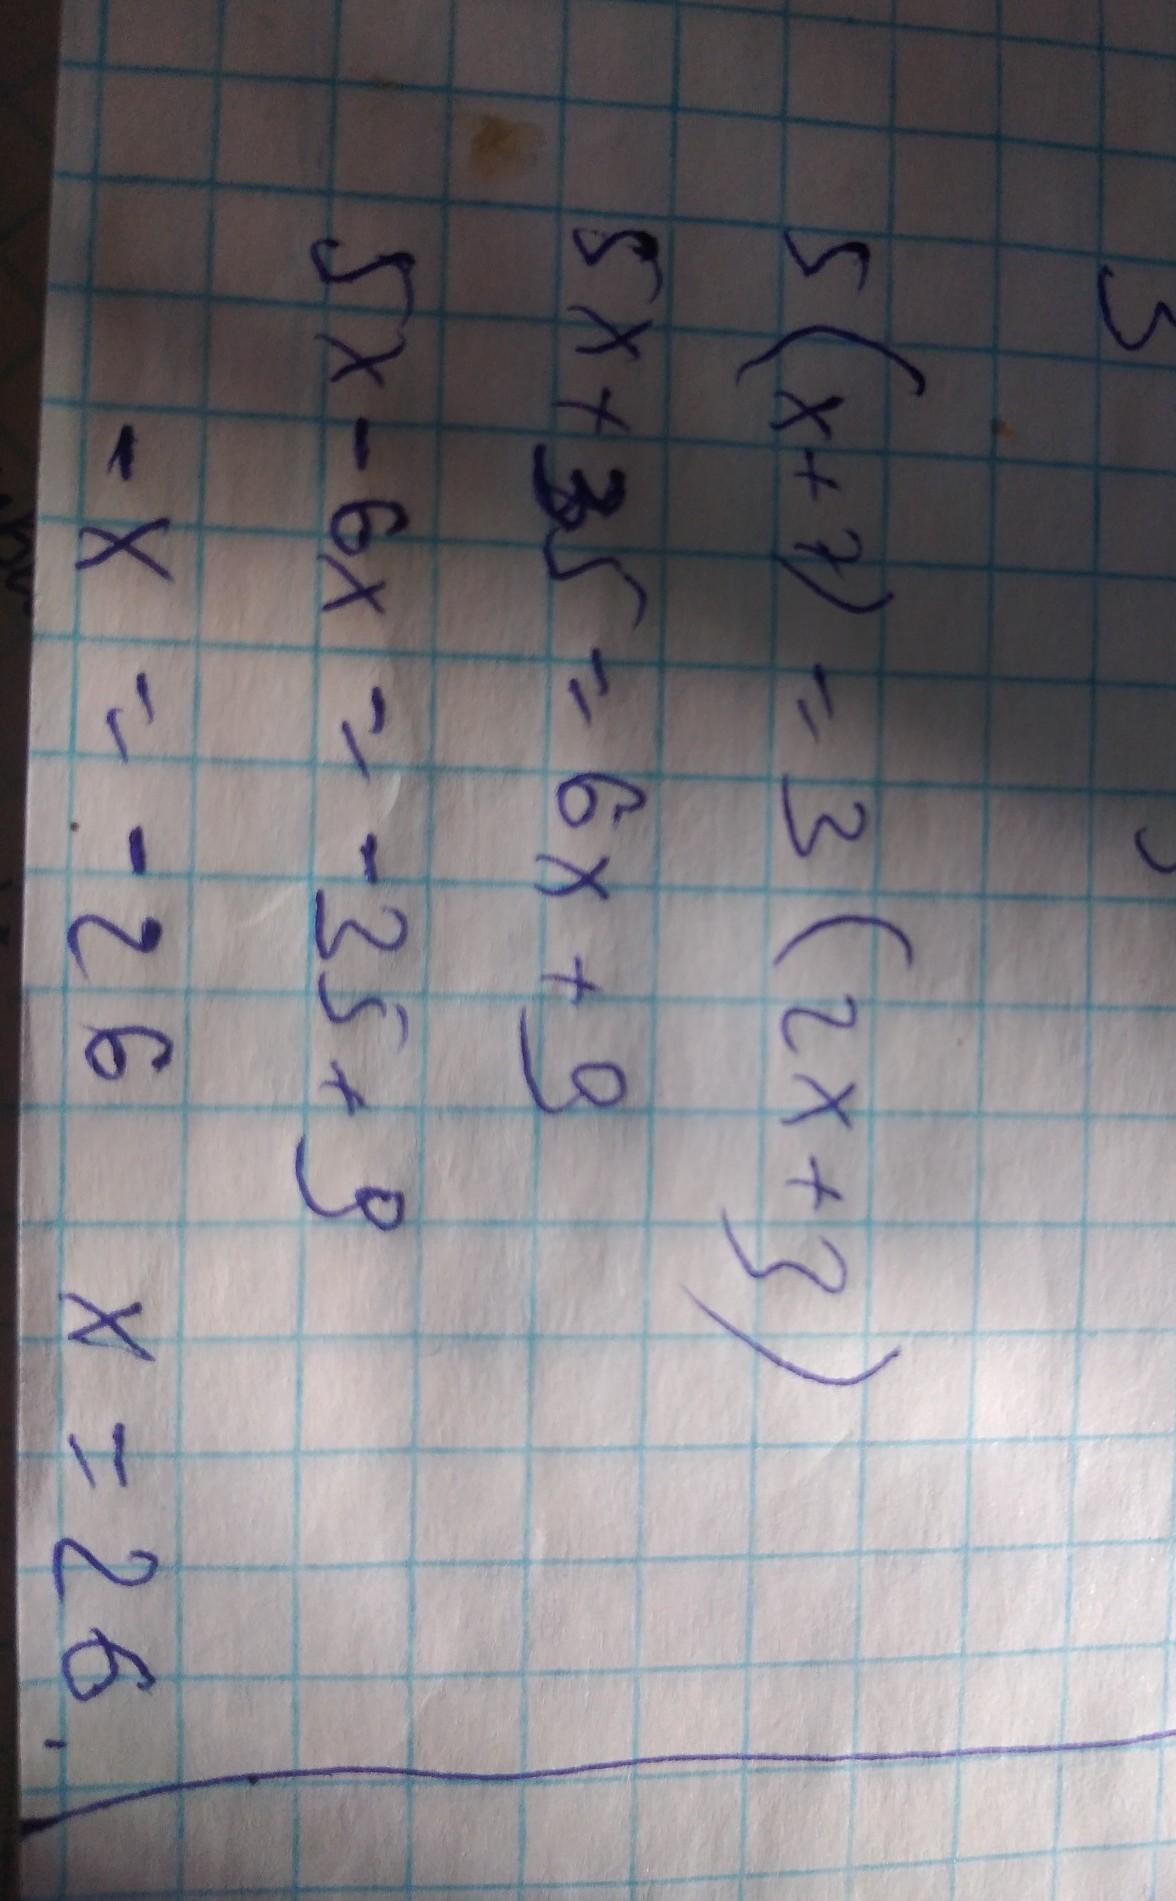 5(x+7) = 3(2x+3)
5x+35 = 6x+9
5x-6x = -35+9
-x = -26 x = 26.